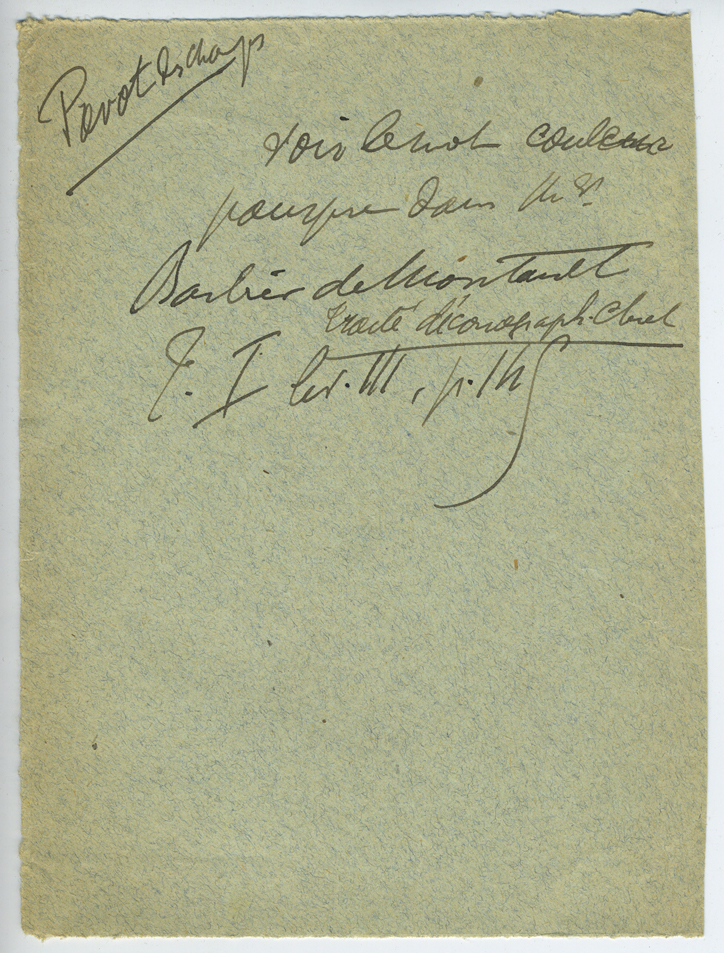 Pavot des champs
voir le mot couleur
pourpre dans Mgr
Barbier de Montault
traité d'iconograph. Chret
T. I liv. III, p.